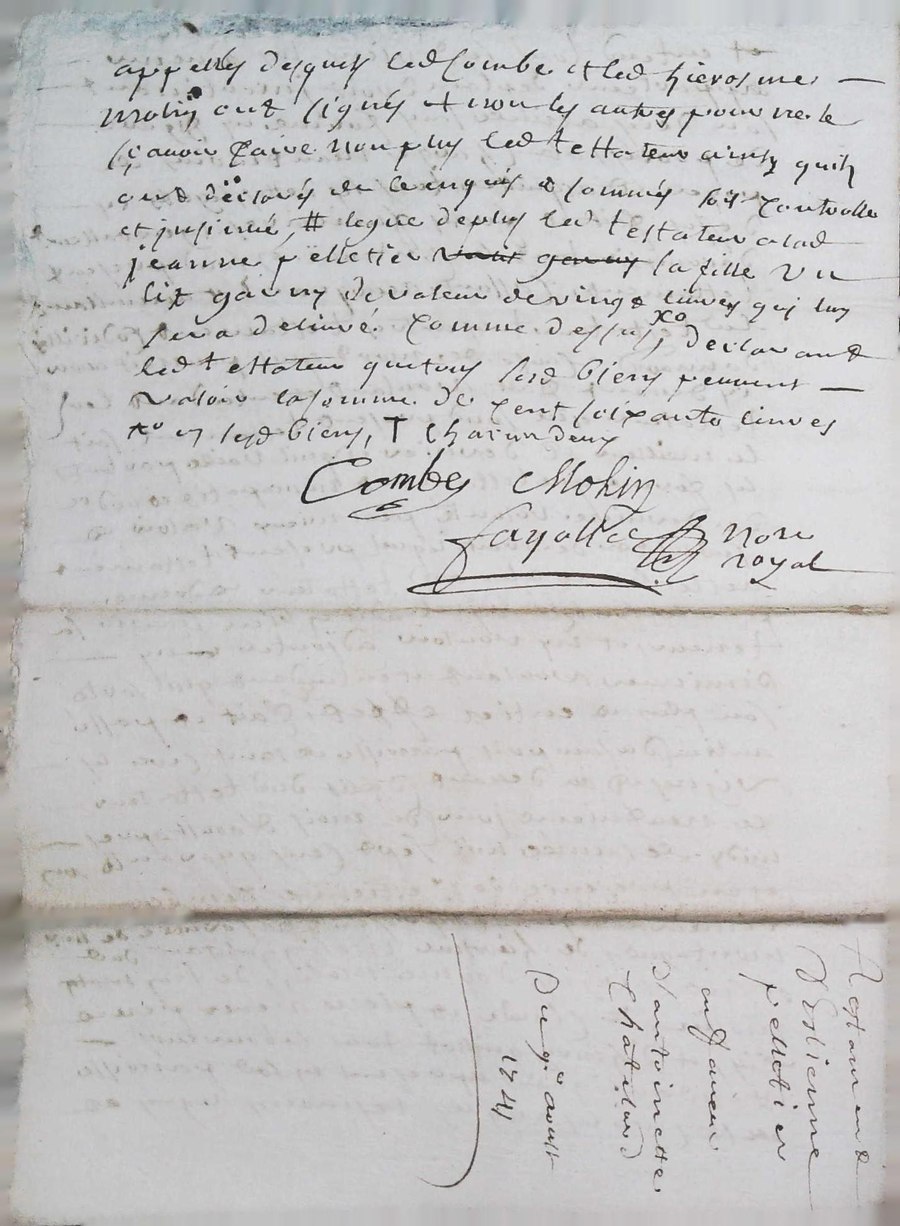 appellés desquels led Combe et led hierosme
Molin ont signés et non les autres pour ne le
sçavoir faire non plus led testateur ainsy quils
ont déclarés de ce enquis & sommés soit controlle
et jnsinué, # legue deplus led testateur a lad
jeanne pelletier sa fille vn
lit garny de valeur de vingt liures qui luy
sera deliuré comme dessus, declarant
led testateur que tous sesd biens peuuent
valoir la somme de cent soixante liures
en sesd biens, † chacun deux
Combe Molin
fayolle nore
royal
Testament
d'Estienne
pelletier
en faueur
d'antoinette
Chatilard
Du 9e aoust
1741